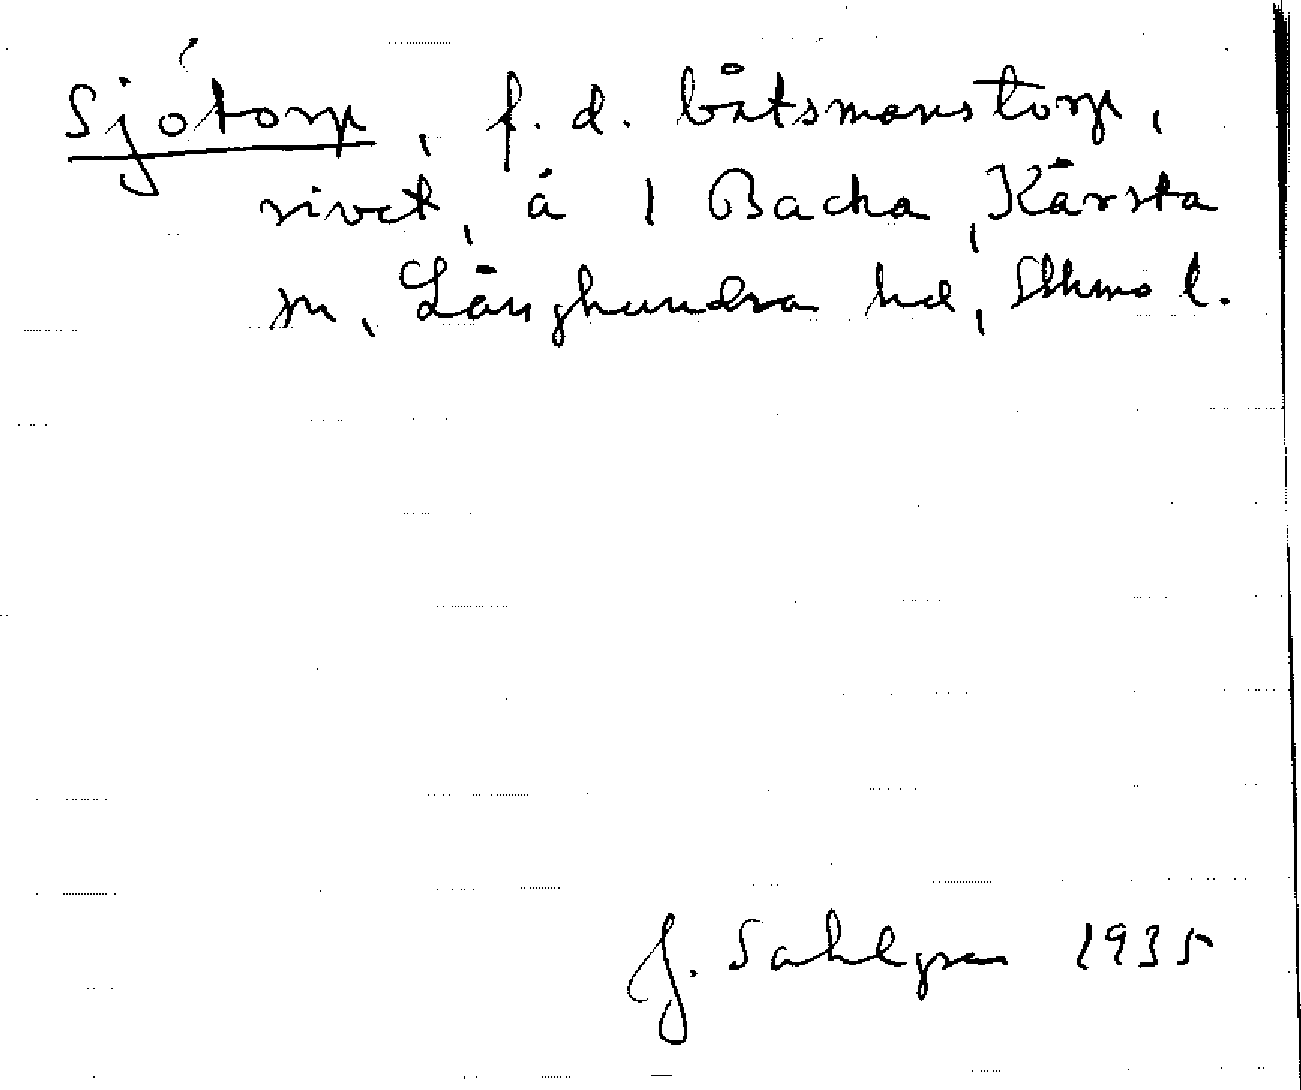 Sjötorp, f. d. båtsmanstorp,
rivet, å 1 Backa, Kårsta
sn, Långhundra hd, Sthms l.
J. Sahlgren 1935